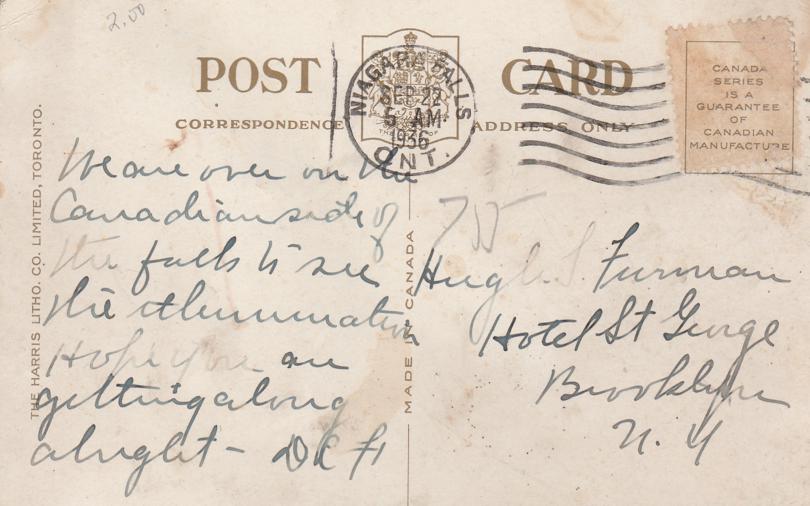 2.00
POST CARD
CORRESPONDENCE ADDRESS ONLY
NIAGARA FALLS
SEP 22
5 AM
1936
ONT.
CANADA
SERIES
IS A
GUARANTEE
OF
CANADIAN
MANUFACTURE
THE HARRIS LITHO. CO. LIMITED, TORONTO.
MADE IN CANADA
We are over on the
Canadian side of
the falls to see
the illumination
Hope you are
getting along
alright –
755
Hugh S. Furman
Hotel St George
Brooklyn
N. Y